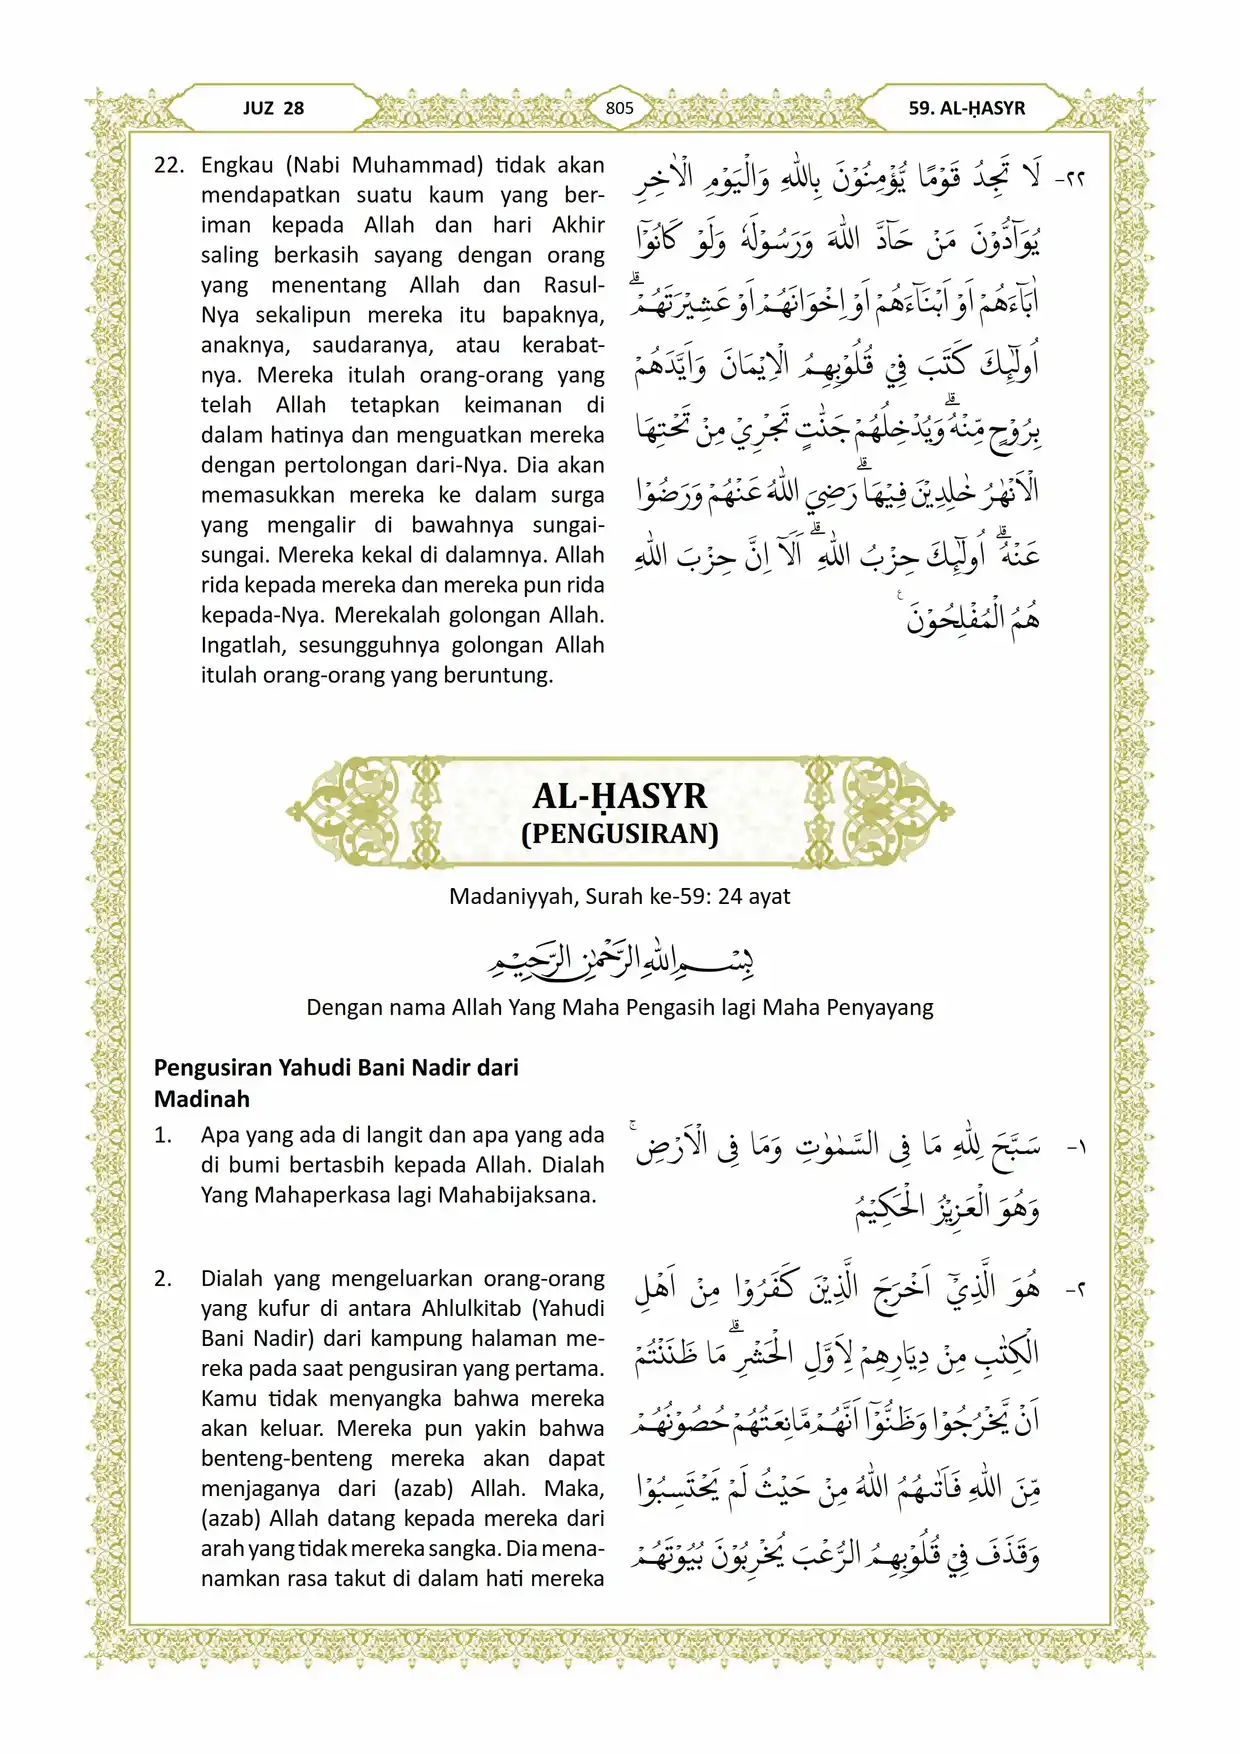 JUZ 28
805
59. AL-ḤASYR
22. Engkau (Nabi Muhammad) tidak akan
mendapatkan suatu kaum yang ber-
iman kepada Allah dan hari Akhir
saling berkasih sayang dengan orang
yang menentang Allah dan Rasul-
Nya sekalipun mereka itu bapaknya,
anaknya, saudaranya, atau kerabat-
nya. Mereka itulah orang-orang yang
telah Allah tetapkan keimanan di
dalam hatinya dan menguatkan mereka
dengan pertolongan dari-Nya. Dia akan
memasukkan mereka ke dalam surga
yang mengalir di bawahnya sungai-
sungai. Mereka kekal di dalamnya. Allah
rida kepada mereka dan mereka pun rida
kepada-Nya. Merekalah golongan Allah.
Ingatlah, sesungguhnya golongan Allah
itulah orang-orang yang beruntung.
٢٢- لَا تَجِدُ قَوْمًا يُّؤْمِنُوْنَ بِاللّٰهِ وَالْيَوْمِ الْاٰخِرِ
يُوَاۤدُّوْنَ مَنْ حَاۤدَّ اللّٰهَ وَرَسُوْلَهٗ وَلَوْ كَانُوْٓا
اٰبَاۤءَهُمْ اَوْ اَبْنَاۤءَهُمْ اَوْ اِخْوَانَهُمْ اَوْ عَشِيْرَتَهُمْۗ
اُولٰۤىِٕكَ كَتَبَ فِيْ قُلُوْبِهِمُ الْاِيْمَانَ وَاَيَّدَهُمْ
بِرُوْحٍ مِّنْهُۗ وَيُدْخِلُهُمْ جَنّٰتٍ تَجْرِيْ مِنْ تَحْتِهَا
الْاَنْهٰرُ خٰلِدِيْنَ فِيْهَاۗ رَضِيَ اللّٰهُ عَنْهُمْ وَرَضُوْا
عَنْهُۗ اُولٰۤىِٕكَ حِزْبُ اللّٰهِۗ اَلَآ اِنَّ حِزْبَ اللّٰهِ
هُمُ الْمُفْلِحُوْنَ ࣖ
AL-ḤASYR
(PENGUSIRAN)
Madaniyyah, Surah ke-59: 24 ayat
بِسْمِ اللّٰهِ الرَّحْمٰنِ الرَّحِيْمِ
Dengan nama Allah Yang Maha Pengasih lagi Maha Penyayang
Pengusiran Yahudi Bani Nadir dari
Madinah
1. Apa yang ada di langit dan apa yang ada
di bumi bertasbih kepada Allah. Dialah
Yang Mahaperkasa lagi Mahabijaksana.
١- سَبَّحَ لِلّٰهِ مَا فِى السَّمٰوٰتِ وَمَا فِى الْاَرْضِۚ
وَهُوَ الْعَزِيْزُ الْحَكِيْمُ
2. Dialah yang mengeluarkan orang-orang
yang kufur di antara Ahlulkitab (Yahudi
Bani Nadir) dari kampung halaman me-
reka pada saat pengusiran yang pertama.
Kamu tidak menyangka bahwa mereka
akan keluar. Mereka pun yakin bahwa
benteng-benteng mereka akan dapat
menjaganya dari (azab) Allah. Maka,
(azab) Allah datang kepada mereka dari
arah yang tidak mereka sangka. Dia mena-
namkan rasa takut di dalam hati mereka
٢- هُوَ الَّذِيْٓ اَخْرَجَ الَّذِيْنَ كَفَرُوْا مِنْ اَهْلِ
الْكِتٰبِ مِنْ دِيَارِهِمْ لِاَوَّلِ الْحَشْرِۗ مَا ظَنَنْتُمْ
اَنْ يَّخْرُجُوْا وَظَنُّوْٓا اَنَّهُمْ مَّانِعَتُهُمْ حُصُوْنُهُمْ
مِّنَ اللّٰهِ فَاَتٰىهُمُ اللّٰهُ مِنْ حَيْثُ لَمْ يَحْتَسِبُوْا
وَقَذَفَ فِيْ قُلُوْبِهِمُ الرُّعْبَ يُخْرِبُوْنَ بُيُوْتَهُمْ